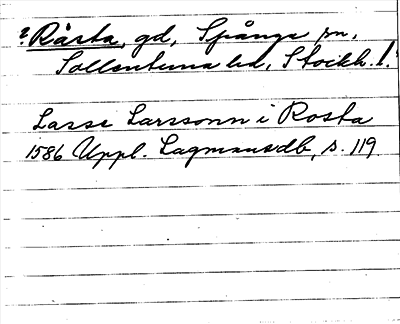 ? Rästa, gd, Spånga sn,
Sollentuna hd, Stockh. l.
Lasse Larssonn i Rosta
1586 Uppl. Lagmansdb, s. 119